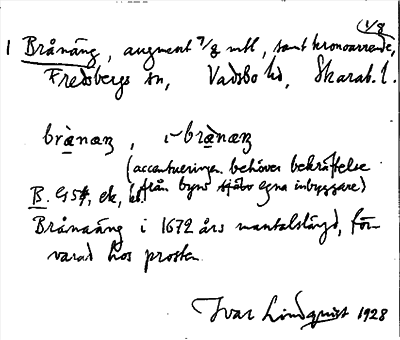 (1/8
1 Brånäng, augment 7/8 mtl, samt kronoarrende,
Fredsbergs sn, Vadsbo hd, Skarab. l.
brånæŋ, i-brånæŋ
(accentueringen behöver bekräftelse
från byns egna inbyggare)
B. G 54, ek,
Brånäng i 1672 års mantalslängd, för-
varad hos prosten
Ivar Lindquist 1928